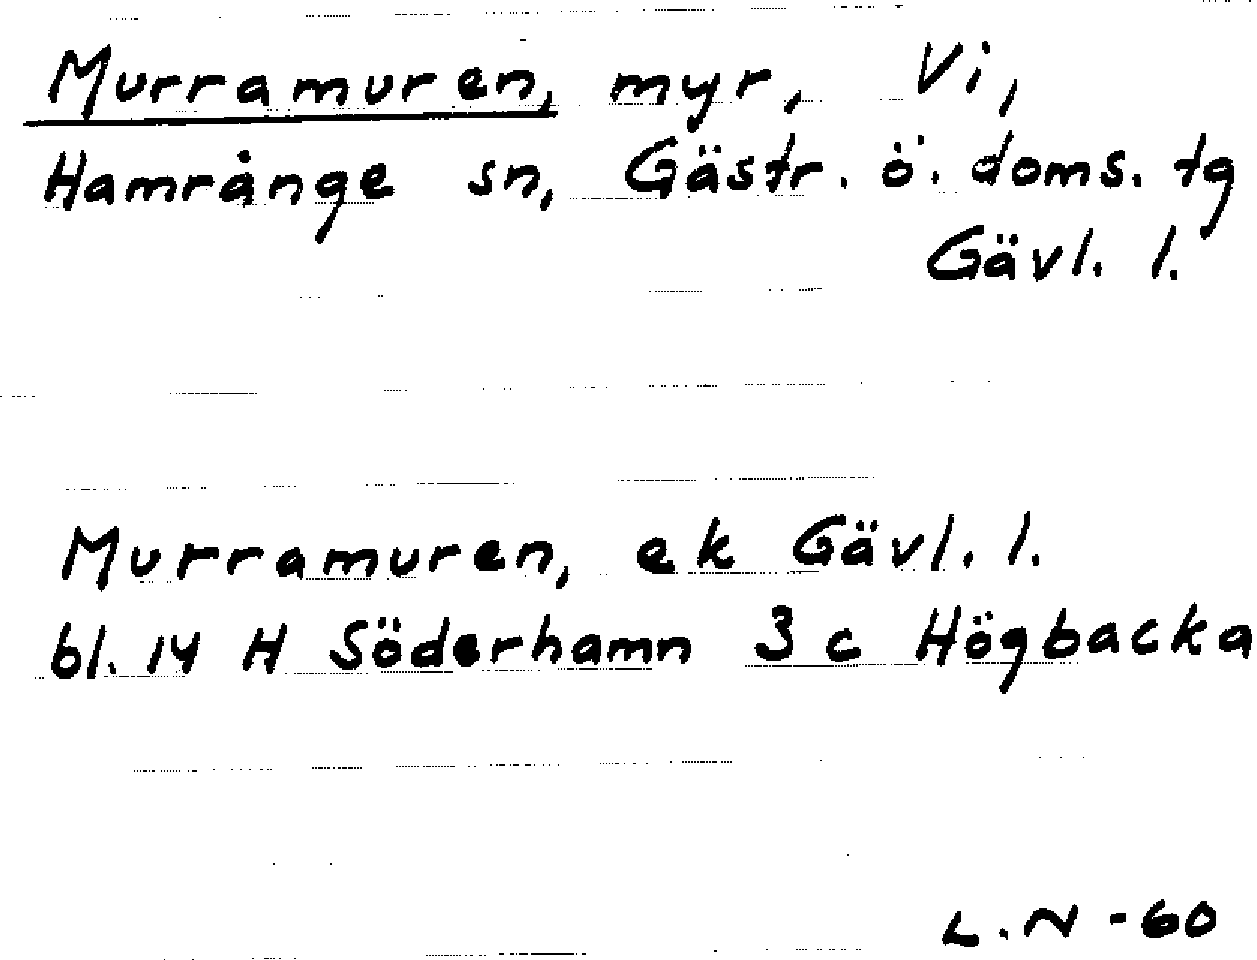 Murramuren, myr, Vi,
Hamrånge sn, Gästr. ö. doms. tg
Gävl. l.
Murramuren, ek Gävl. l.
bl. 14 H Söderhamn 3 c Högbacka
L.N -60